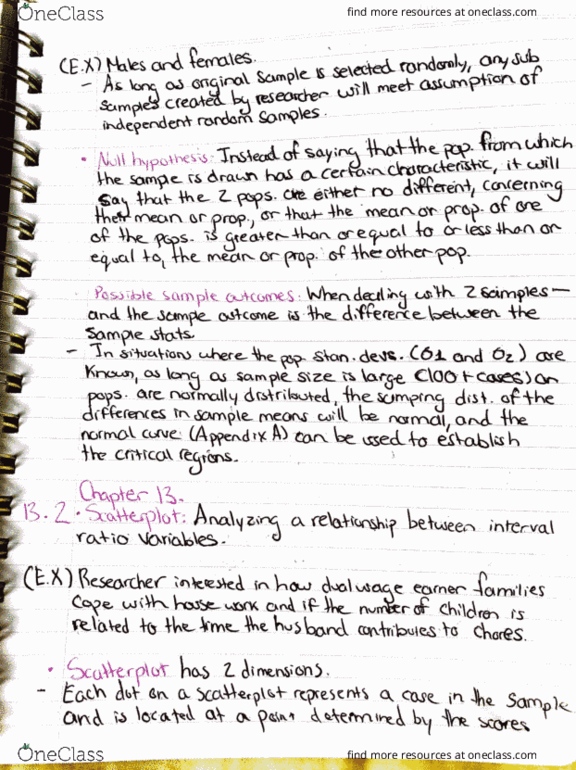 OneClass
find more resources at oneclass.com
(E.X) Males and females.
- As long as original sample is selected randomly, any sub
samples created by researcher will meet assumption of
independent random samples.
• Null hypothesis: Instead of saying that the pop. from which
the sample is drawn has a certain characteristic, it will
say that the 2 pops. are either no different, concerning
their mean or prop., or that the mean or prop. of one
of the pops. is greater than or equal to or less than or
equal to, the mean or prop. of the other pop.
• Possible sample outcomes: When dealing with 2 samples—
and the sample outcome is the difference between the
sample stats.
- In situations where the pop. stan. devs. (σ1 and σ2) are
known, as long as sample size is large (100+ cases) or
pops. are normally distributed, the sampling dist. of the
differences in sample means will be normal, and the
normal curve (Appendix A) can be used to establish
the critical regions.
Chapter 13.
13.2 • Scatterplot: Analyzing a relationship between interval
ratio variables.
(E.X) Researcher interested in how dual wage earner families
cope with house work and if the number of children is
related to the time the husband contributes to chores.
• Scatterplot has 2 dimensions.
- Each dot on a scatterplot represents a case in the sample
and is located at a point determined by the scores
OneClass
find more resources at oneclass.com